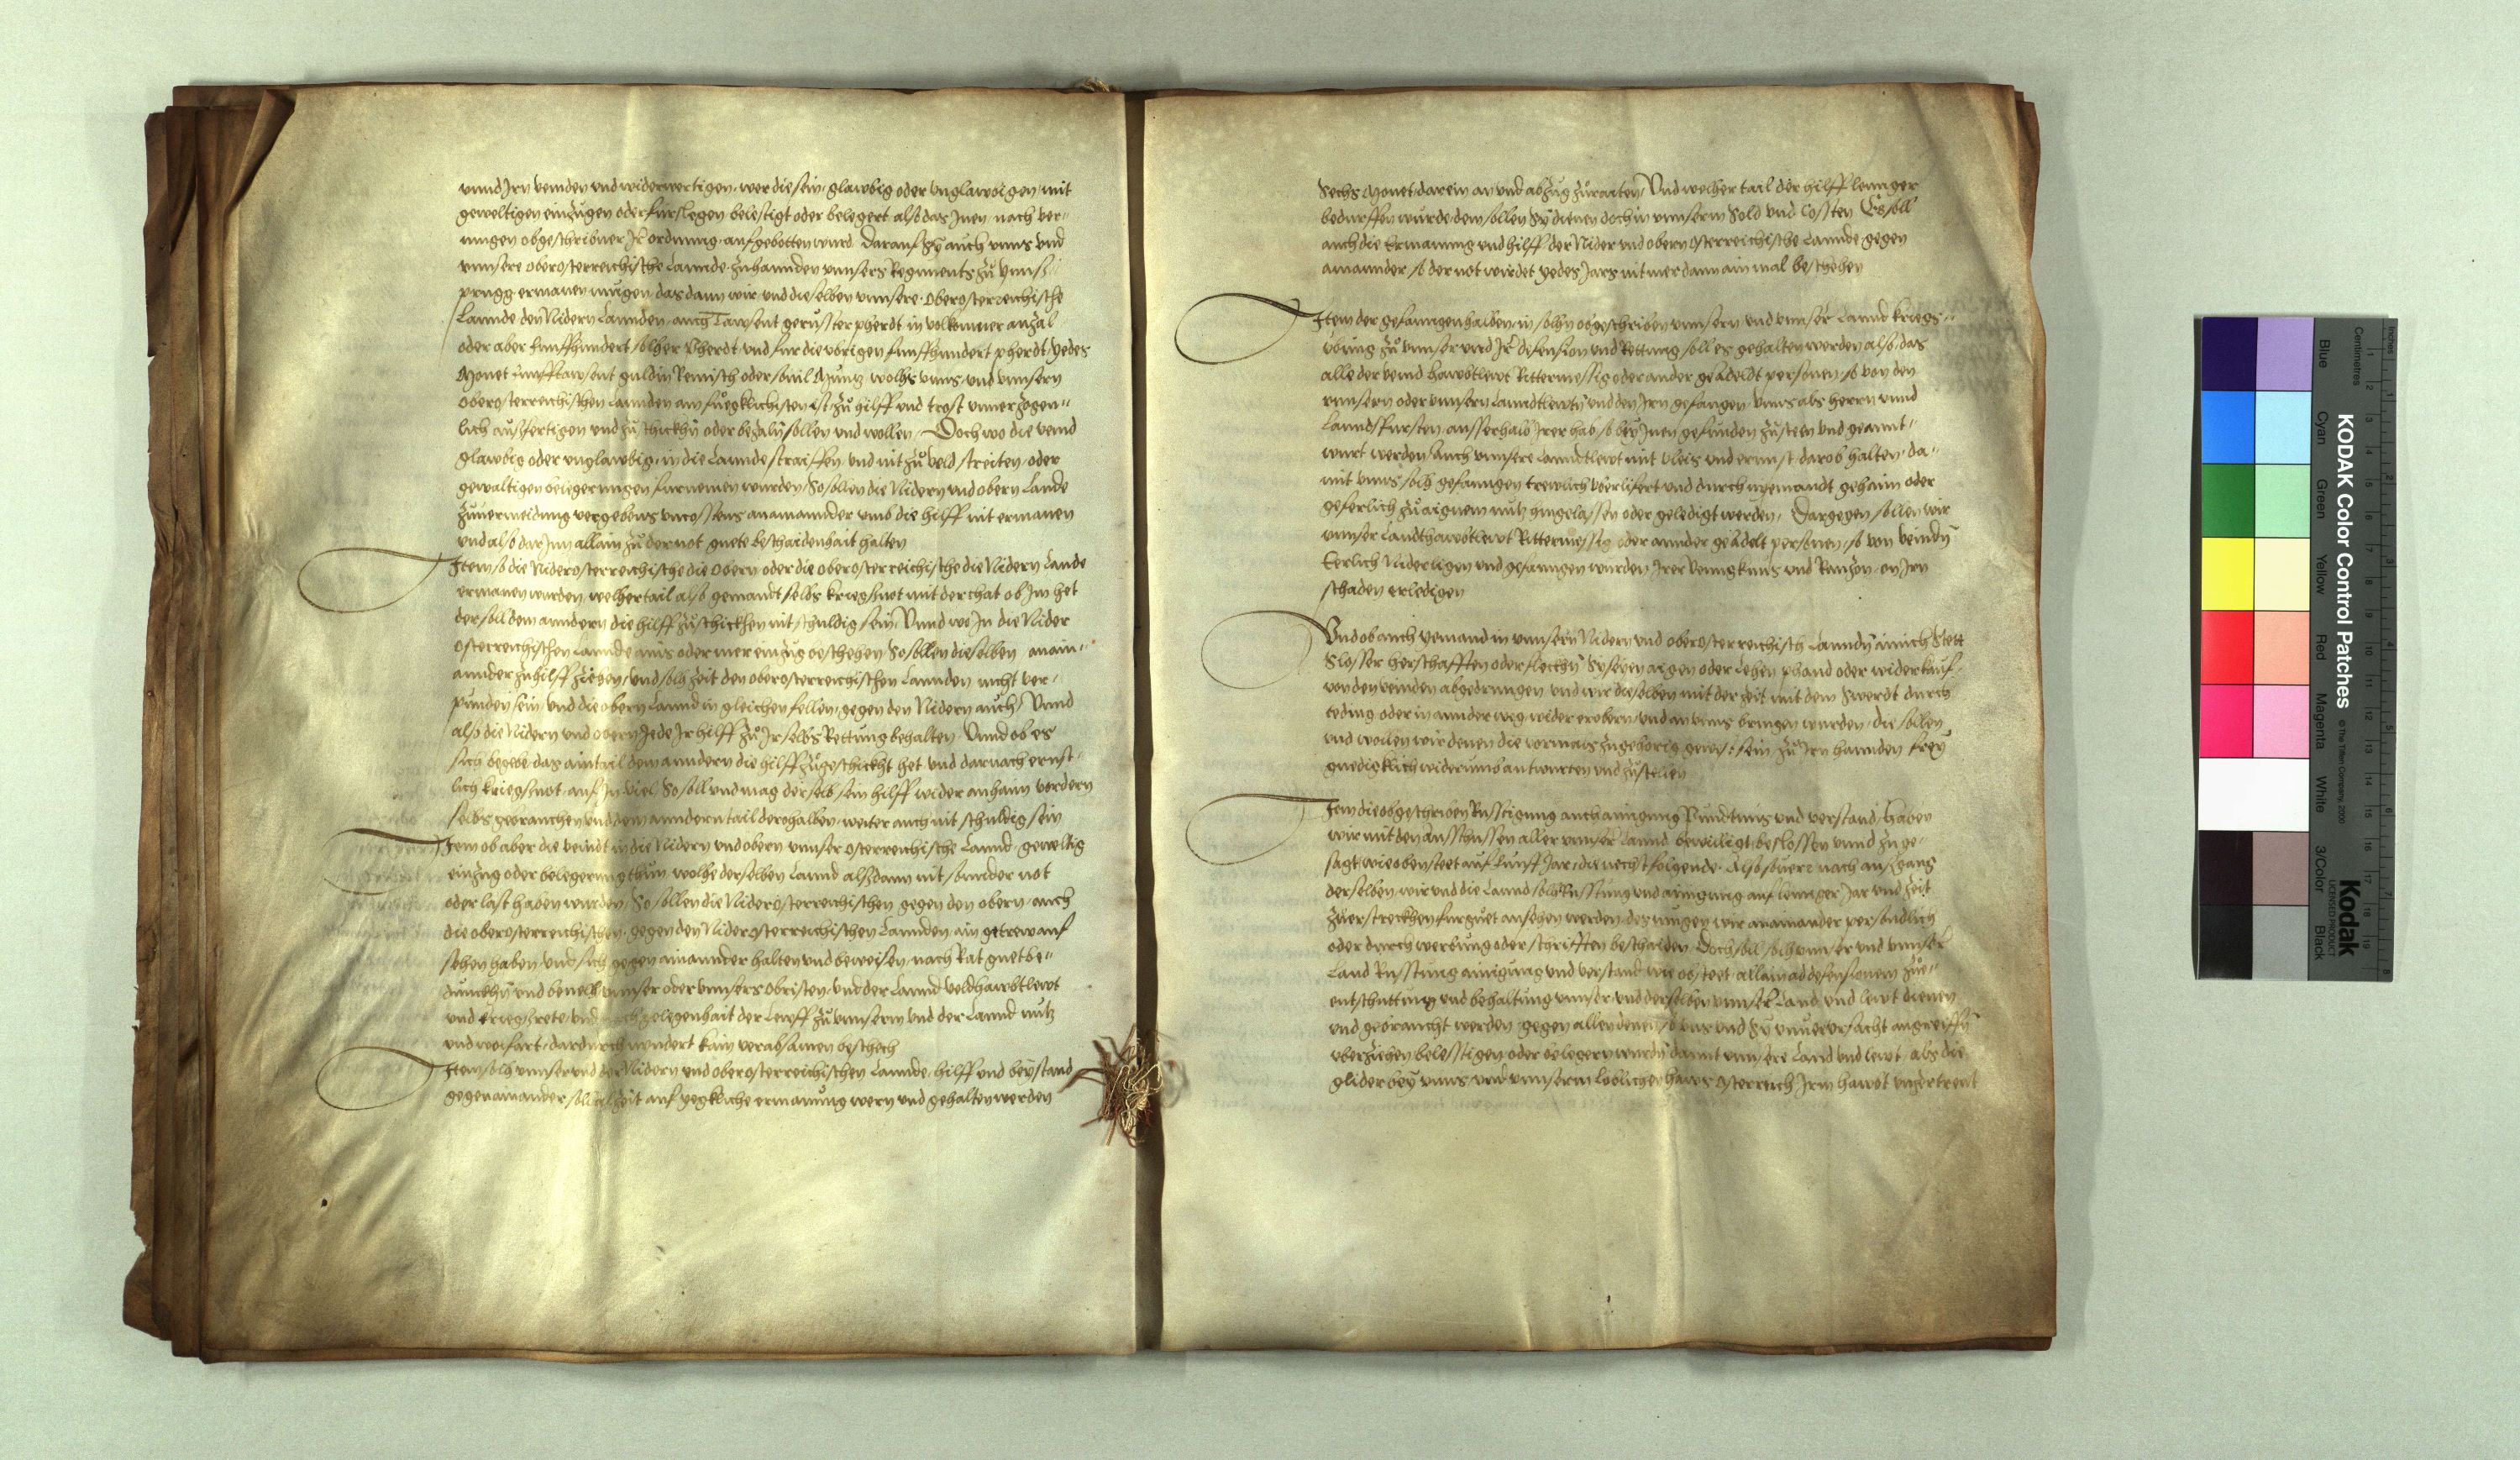 vnnd Irn veinden vnd widerwertigen, wer die sein, glawbig oder vnglawbigen, mit
geweltigen einzugen oder furslegen belestigt oder belegert also das Inen nach ver-
mugen obgeschribner Ir ordnung aufgebotten wurd Darauf Sy auch vnns vnd
vnnsere oberosterreichische Lannde zuhannden vnnsers Regiments zu Ynns
prugg ermanen mugen das dann wir vnd dieselben vnnsere oberosterreichische
Lannde den Nidern Lannden auch Tawsent gerusster pherdt in volkomner anzal
oder aber funffhundert solher Pherdt vnd fur die vbrigen funffhundert pherdt yedes
Monet funfftawsent guldin Reinisch oder souil Muntz wolhs vnns vnd vnnsern
oberosterreichischen Lannden am fuegklichisten ist zu hilff vnd trost vnuerzogen-
lich ausfertigen vnd zu schickhn oder bezaln sollen vnd wollen, Doch wo die veind
glawbig oder vnglawbig, in die Lannde straiffen, vnd nit zu veld streiten, oder
gewaltigen belegerungen furnemen wurden, So sollen die Nidern vnd obern Lande
zuuermeidung vergebens vncosstens an ainannder vmb die hilff nit ermanen
vnd also darInn allain zu der not guete beschaidenhait halten
Item so die Niderosterreichische die obern oder die oberosterreichische die Nidern Lande
ermanen wurden, welher tail also gemandt selbs kriegsnot mit der that ob Im het
der soll dem anndern die hilff zuschickhen nit schuldig sein, Vnnd wo In die Nider
osterreichischen Lannde ains oder mer einzug beschehen So sollen dieselben ain-
annder zuhilff ziehen, vnd solh zeit den oberosterreichischen Lannden nicht ver-
punden sein vnd die obern Lannd in gleichen fellen, gegen den Nidern auch, Vnnd
also die Nidern vnd obern Iede Ir hilff zu Ir selbs Rettung behalten Vnnd ob es
sich begebe das ain tail dem anndern die hilff zugeschickht het vnd darnach ernst-
lich kriegsnot, auf In viel, So soll vnd mag derselb sein hilff wider anhaim vordern
selbs gebrauchen vnd dem anndern tail derohalben, weiter auch nit schuldig sein
Item ob aber die veindt in die Nidern vnd obern vnnser osterreichische Lannd, geweltig
einzug oder belegerung thun wolhe derselben Lannd alsdann nit sunder not
oder last haben wurden, So sollen die Niderosterreichischen gegen den obern, auch
die oberosterreichischen, gegen den Niderosterreichischen Lannden ain getrew auf
sehen haben vnd sich gegen ainannder halten vnd beweisen, nach Rat guetbe-
dunckhn vnd beuelh, vnnser oder vnnsers obristen, vnd der Lannd veldhawbtlewt
vnd kriegsrete, vnd nach gelegenhait der Lewff zu vnnserm vnd der Lannd nutz
vnd wolfart, dardurch nyndert kain verabsamen beschech
Item solh vnnser vnd der Nidern vnd oberosterreichischen Lannde, hilff vnd beystand
gegenainander, soll al zeit auf yegkliche ermanung wern vnd gehalten werden
Sechs Monet, darein an vnd abzug zuraiten, Vnd welher tail der hilff lennger
bedurffen wurde, dem sollen Sy dienen doch in vnnserm Sold vnd Cossten Es soll
auch die Ermanung vnd hilff der Nider vnd obern osterreichische Lannde gegen
ainannder, so der not wirdet yedes Jars nit mer dann ain mal beschehen
Item der gefanngen halben, in solhn obgeschriben vnnsern vnd vnnser Lannd kriegs-
vbung zu vnnser vnd Ir defension vnd Rettung soll es gehalten werden also, das
alle der veind hawbtlewt Rittermessig oder ander geadeldt personen, so von den
vnnsern oder vnnsern Lanndtlewtn vnd den Irn gefangen vnns als herrn vnnd
Lanndsfursten, ausserhalb Irer hab, so bey Inen gefunden zusteen vnd geannt-
wurt werden, Auch vnnsere Lanndtlewt mit vleis vnd ernnst, darob halten, da-
mit vnns solh gefanngen trewlich vberlifert vnd durch nyemandt gehaim oder
geferlich zu aignem nutz hingelassen oder geledigt werden, Dargegen sollen wir
vnnser Landthawbtlewt Rittermessig oder annder geadelt personen, so von veindn
Eerlich Niderligen vnd gefanngen wurden Irer Vennkhnus vnd Ranzon, on Irn
schaden erledigen
Vnd ob auch yemand in vnnsern Nidern vnd oberosterreichisch Lanndn ainich Stett
Slosser herschafften oder flecken Sy seyen aigen oder Lehen phand oder widerkauf
von den veinden abgedrungen vnd wir dieselben mit der zeit mit dem Swerdt durch
teding oder in annder weg wider erobern, vnd an vnns bringen wurden, die sollen
vnd wollen wir denen die vormals zugehorig gewest sein zu Irn hannden frey
gnedigklich widerumb antwurten vnd zustellen
Item die obgeschriben Russtigung auch ainigung Pundtnus vnd verstand, haben
wir mit den Ausschussen aller vnnser Lannd bewilligt, beslossen vnnd zuge-
sagt, wie oben steet auf funff Jar, die nechstfolgende, Also ouerr nach ausgang
derselben, wir vnd die Lannd solh Russtung vnd ainigung auf lennger Jar vnd zeit
zuerstreckhen fur guet ansehen werden, des mugen wir anainander persondlich
oder durch werbung oder schrifften beschaiden Doch soll solh vnnser vnd vnnser
Land Russtung ainigung vnd verstand wie obsteet, allain ad defensionem zue-
entschuttung vnd behaltung vnnser vnd derselben vnnser Land vnd lewt dienen
vnd gebraucht werden, gegen allen denen, so vns vnd Sy vnuerursacht angreiffn
vberziehen belestigen oder belegern wurdn damit vnnsere Land vnd lewt, als die
glider bey vnns vnd vnnserm loblichen haws osterreich Irm hawbt vnzertrent
KODAK Color Control Patches
© The Tiffen Company, 2000
Kodak
LICENSED PRODUCT
Blue
Cyan
Green
Yellow
Red
Magenta
White
3/Color
Black
Centimetres
Inches